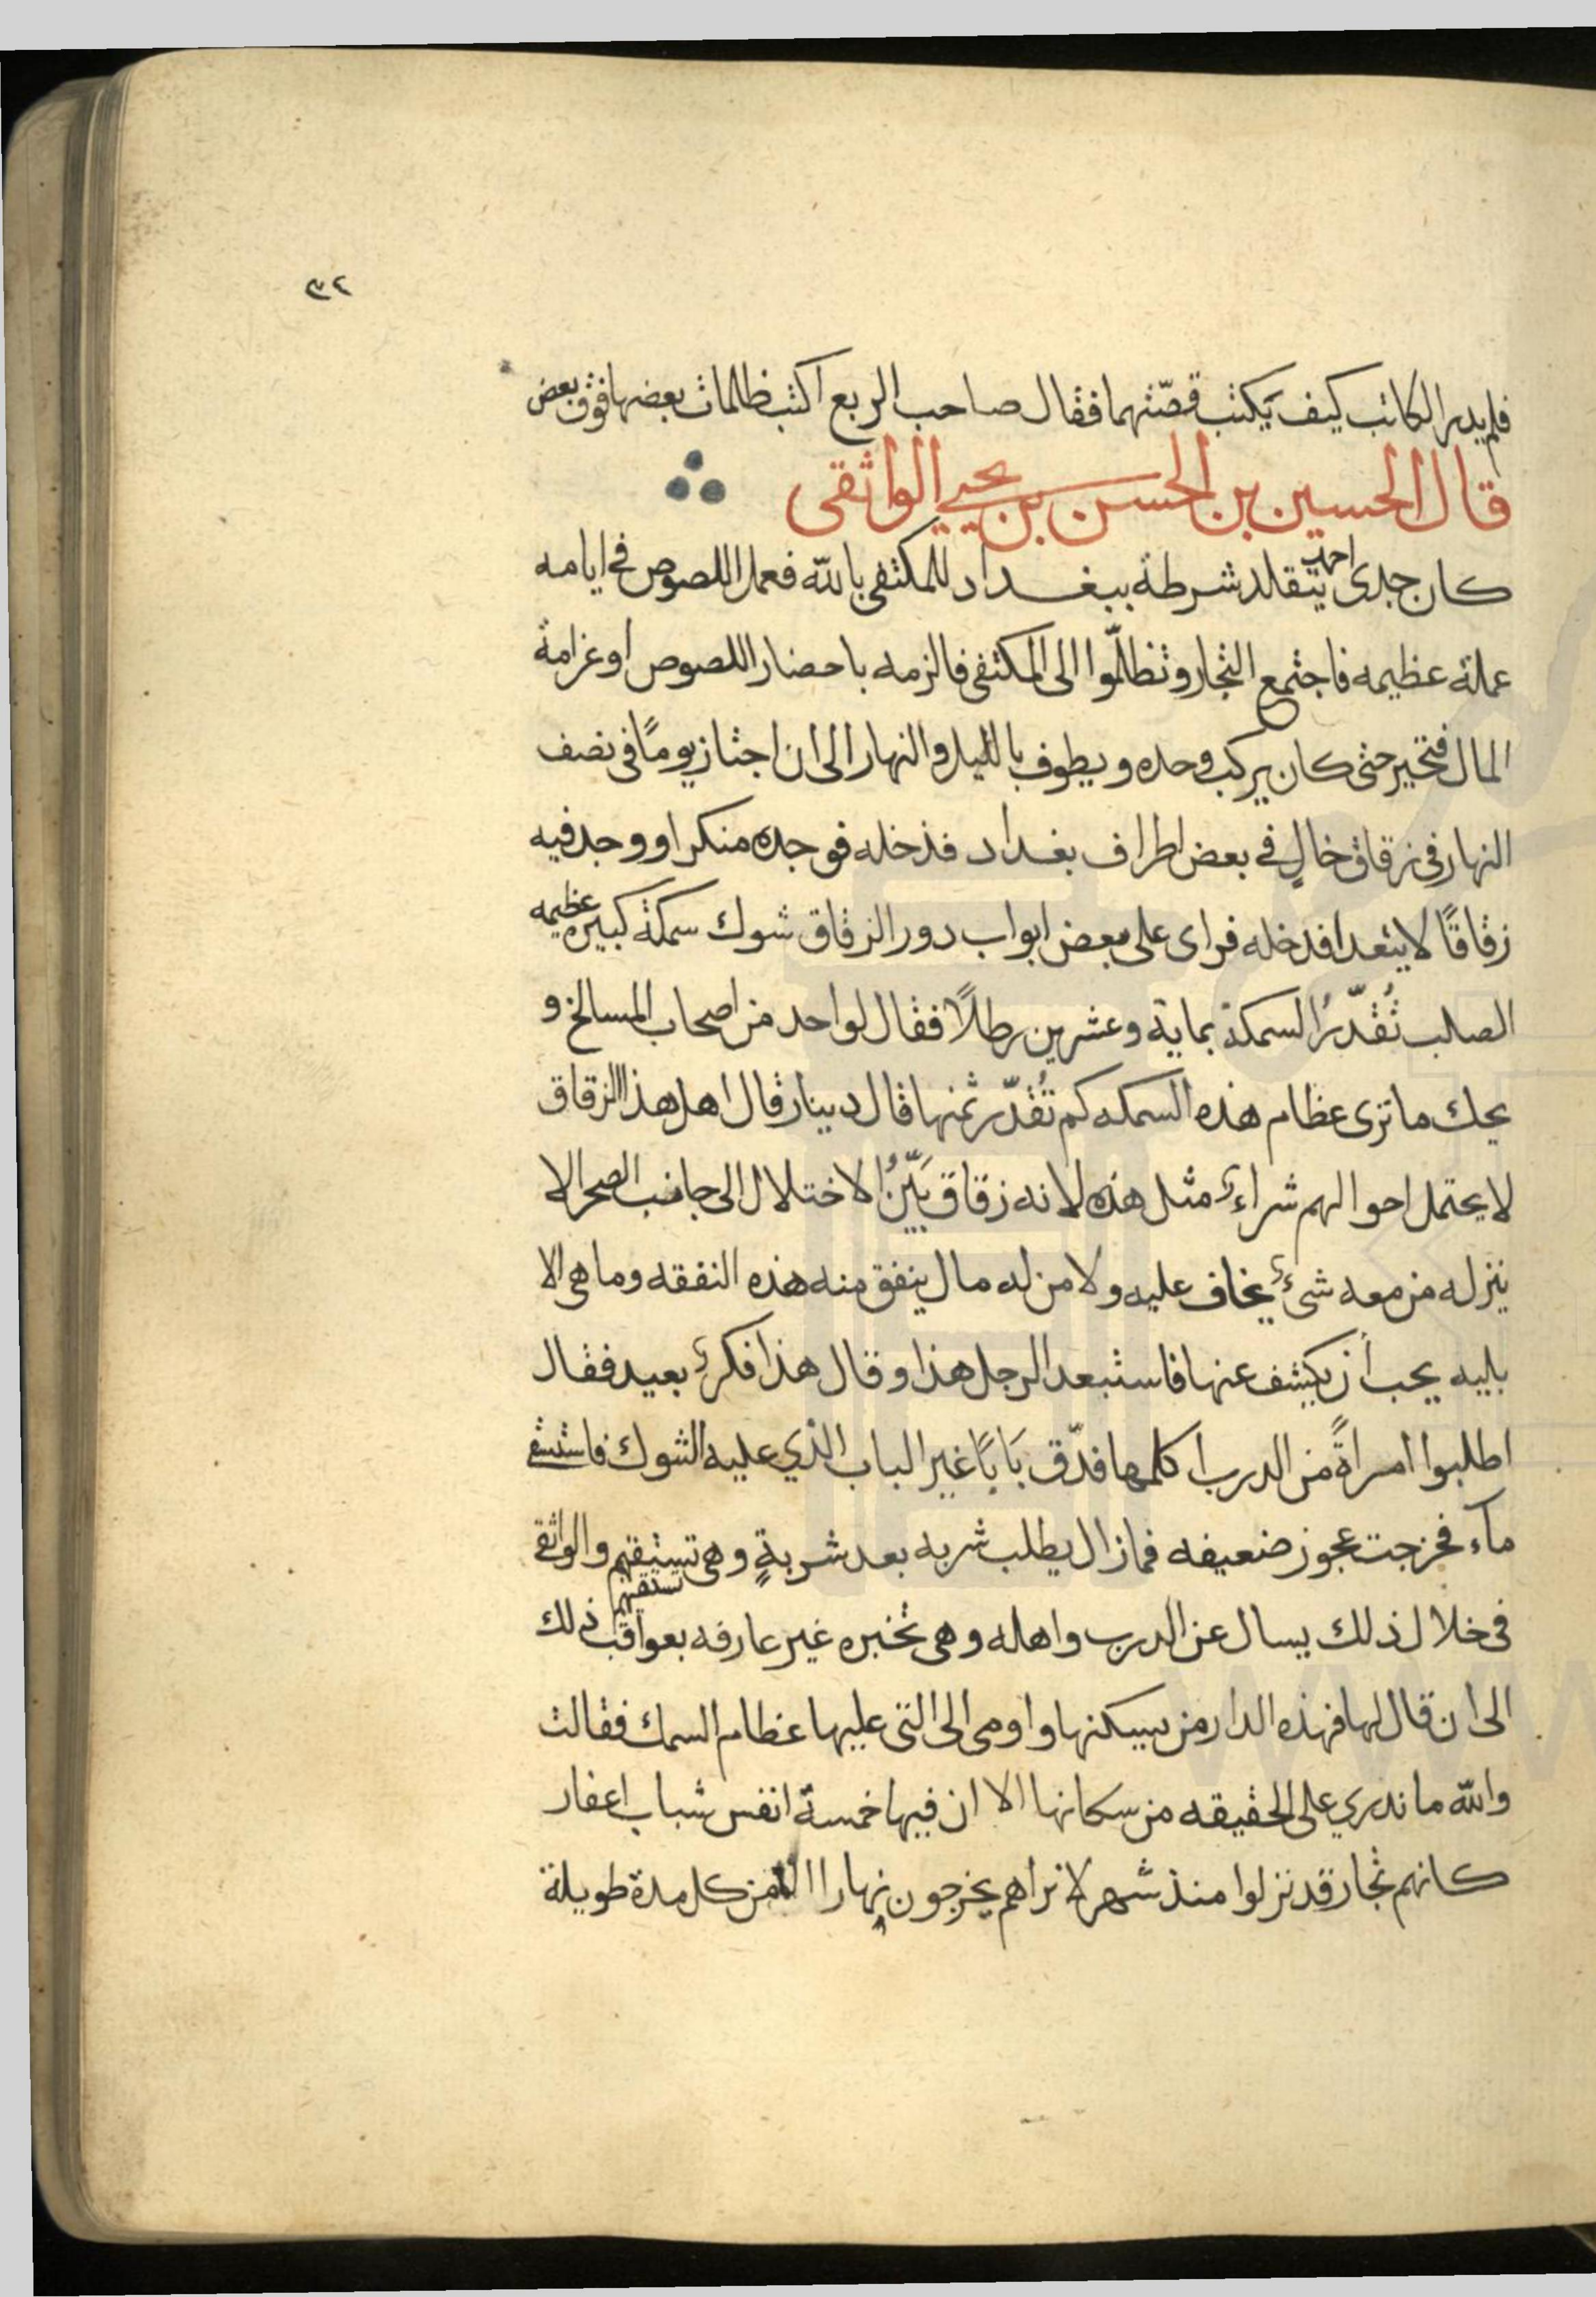 ٣٤
فلم يدر الكاتب كيف يَكتب قصّتهما فقال صاحب الربع اكتب ظالمات بعضها فوق بعض
قال الحسين بن الحسن بن يحيى الواثقى
كان جدى احمد يتقلد شرطة ببغداد للمكتفى بالله فعمل اللصوص في ايامه
عملة عظيمه فاجتمع التجار وتظلّموا الى المكتفى فالزمه باحضار اللصوص او غرامة
المال فتحير حتى كان يركب وحده ويطوف بالليل والنهار الى ان اجتاز يومًا في نصف
النهار في زقاق خالٍ في بعض اطراف بغداد فدخله فوجده منكرا ووجد فيه
زقاقًا لا يتعدا فدخله فراى على بعض ابواب دور الزقاق شوك سمكة كبيره عظيمه
الصلب تُقدّرُ السمكة بماية وعشرين رطلًا فقال لواحد من اصحاب المسالخ و
يحك ما ترى عظام هذه السمكه كم تُقدّر ثمنها قال دينار قال اهل هذا الزقاق
لا يحتمل احوالهم شراء مثل هذه لانه زقاق بَيّنُ الاختلال الى جانب الصحرا لا
ينزله من معه شئ يخاف عليه ولا من له مال ينفق منه هذه النفقه وما هى الا
بليه يجب أن يكشف عنها فاستبعد الرجل هذا وقال هذا فكر بعيد فقال
اطلبوا امراةً من الدرب اكلمها فدّق بَابًا غير الباب الذي عليه الشوك فاستسقى
ماء فخرجت عجوز ضعيفه فما زال يطلب شربه بعد شربةٍ وهى تسيقهم والواثقى
تسقيهم
في خلال ذلك يسال عن الدرب واهله وهى تخبره غير عارفه بعواقب ذلك
الى ان قال لها فهذه الدار من يسكنها واومى الى التى عليها عظام السمك فقالت
والله ما ندري على الحقيقه من سكانها الا ان فيها خمسة انفس شباب اعفار
كانهم تجار قد نزلوا منذ شهر لا نراهم يخرجون نهارا الا من كل مدة طويلة